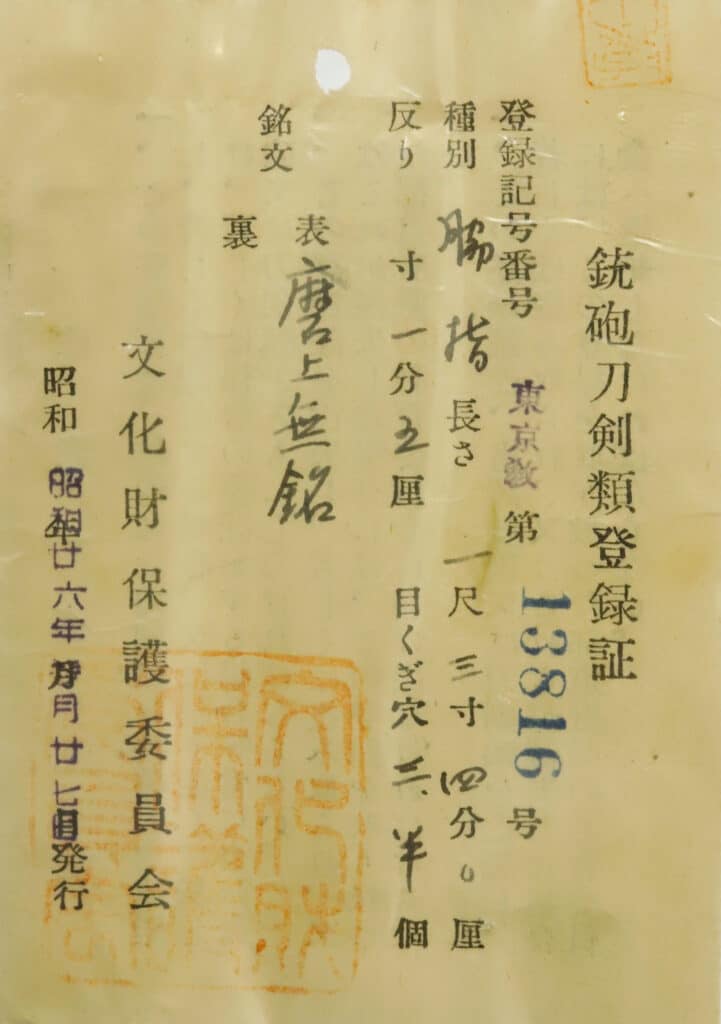 銃砲刀剣類登録証
登録記号番号 東京教 第 13816 号
種別 脇指 長さ 一尺 三寸 四分 0 厘
反り 寸 一分 五厘 目くぎ穴 二、半 個
銘文
表 磨上無銘
裏
文化財保護委員会
昭和 昭和廿六年 月廿七日発行
文化財
保護